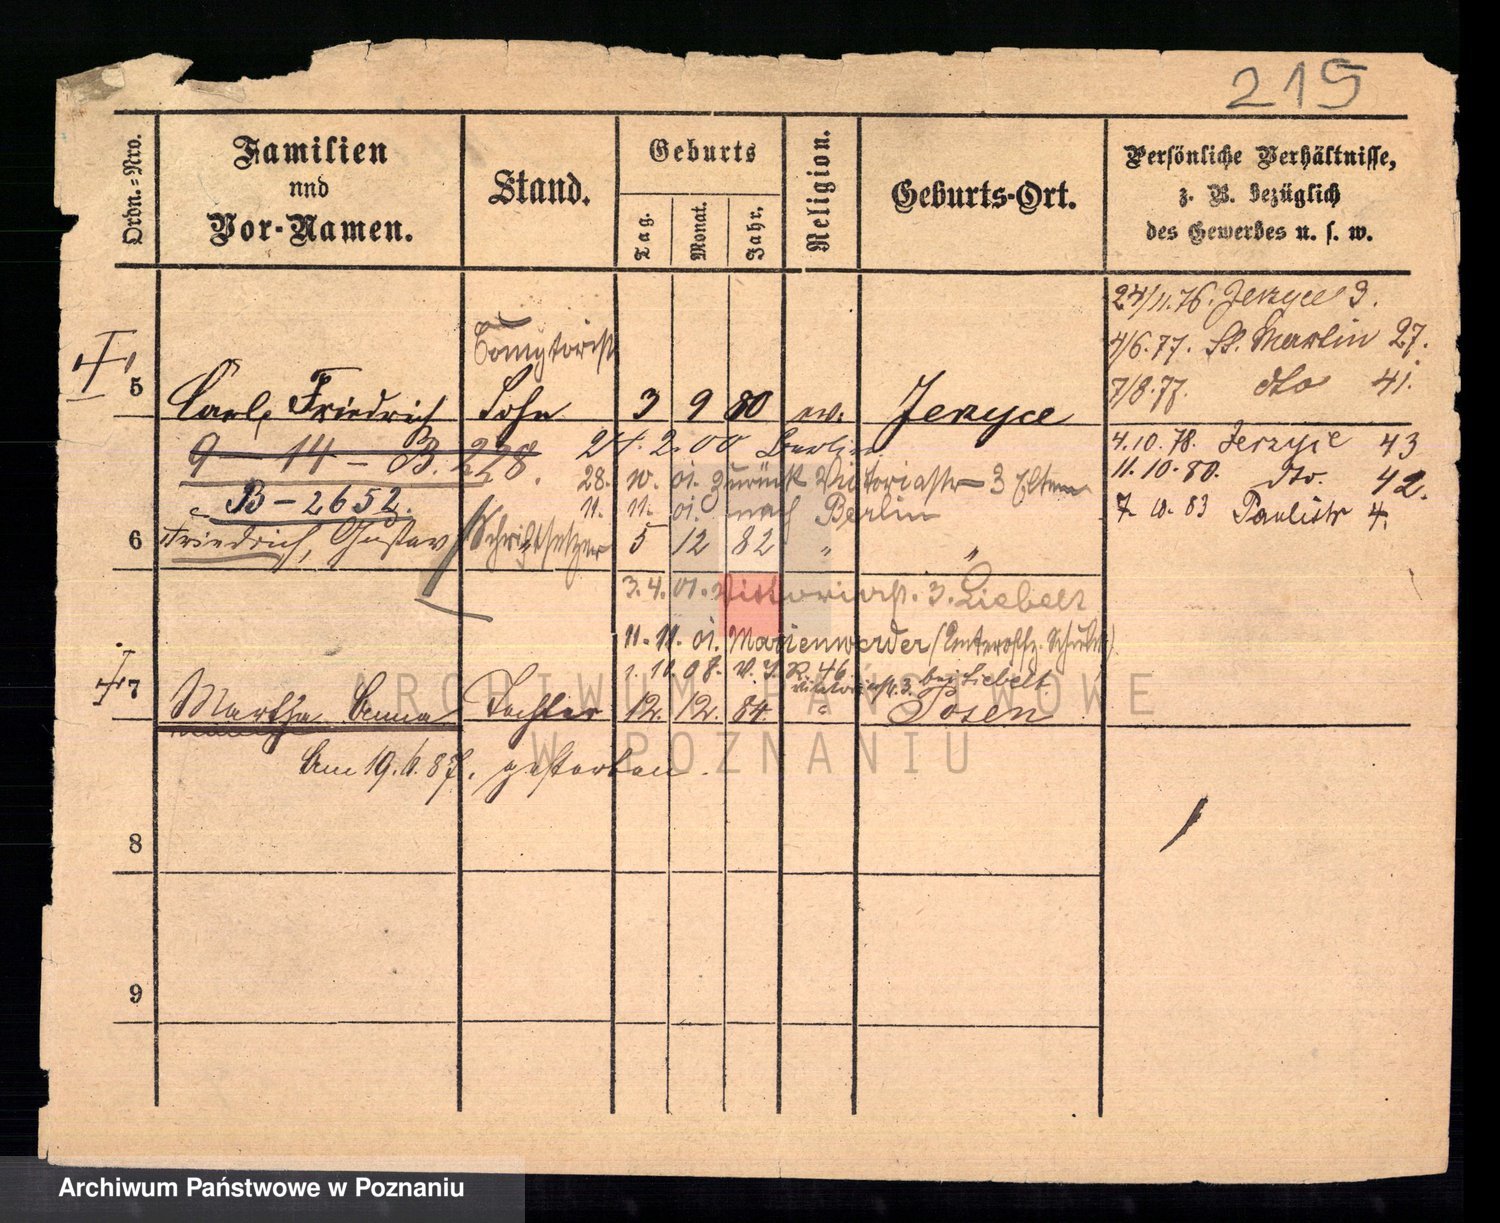 215
Ordn.-Nro.
Familien
und
Vor-Namen.
Stand.
Geburts
Tag.
Monat.
Jahr.
Religion.
Geburts-Ort.
Persönliche Verhältnisse,
z. B. bezüglich
des Gewerbes u. s. w.
24/11.76. Jerzyce 3.
4/6.77. St. Martin 27.
7/8.77. dto 41.
Comptorist
5 Carl Friedrich Sohn 3 9 80 ev. Jerzyce
4.10.78. Jerzyce 43
11.10.80. dto. 42.
7.10.83 Paulistr 4.
9 - 14 - B. 228. 24.2.00 Berlin
28. 10. 01. zurück Victoriastr 3 Eltern
B - 2652. 11. 11. 01. nach Berlin
6 Friedrich, Gustav Schriftsetzer 5 12 82 " "
3.4.01. Victoriastr. 3. Liebelt
11.11.01. Marienwerder (Unteroffz. Schule)
1.10.08. v. I. R. 46
Victoriastr. 3. bei Liebelt
7 Martha Anna Tochter 12. 12. 84. " Posen
Am 19.6.87. gestorben.
8
9
ARCHIWUM PAŃSTWOWE
W POZNANIU
Archiwum Państwowe w Poznaniu